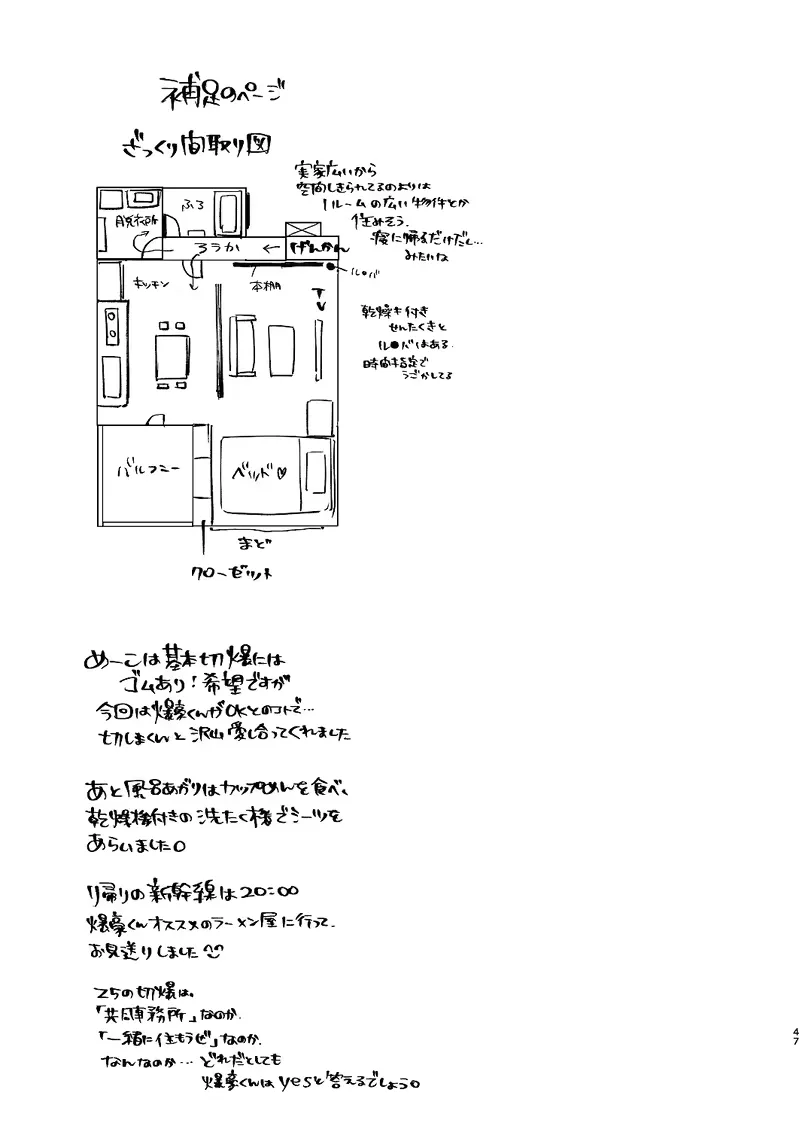 補足のページ
ざっくり間取り図
実家広いから
空間しきられてるのよりは
1ルームの広い物件とか
住みそう.
寝に帰るだけだし…
みたいな
脱衣所
ふろ
ろうか
←
げんかん
ル●バ
キッチン
本棚
TV
乾燥キ付き
せんたくきと
ル●バはある.
時間指定で
うごかしてる
バルコニー
ベッド♡
まど
クローゼット
めーこは基本切爆には
ゴムあり!希望ですが
今回は爆豪くんがOKとのコトで…
切しまくんと沢山愛し合ってくれました
あと風呂あがりはカップめんを食べ、
乾燥機付きの洗たく機でシーツを
あらいました。
帰りの新幹線は20:00
爆豪くんオススメのラーメン屋に行って.
お見送りしました^^
25の切爆は.
「共同事務所」なのか.
「一緒に住もうぜ」なのか.
なんなのか…どれだとしても
爆豪くんはyesと答えるでしょう。
47